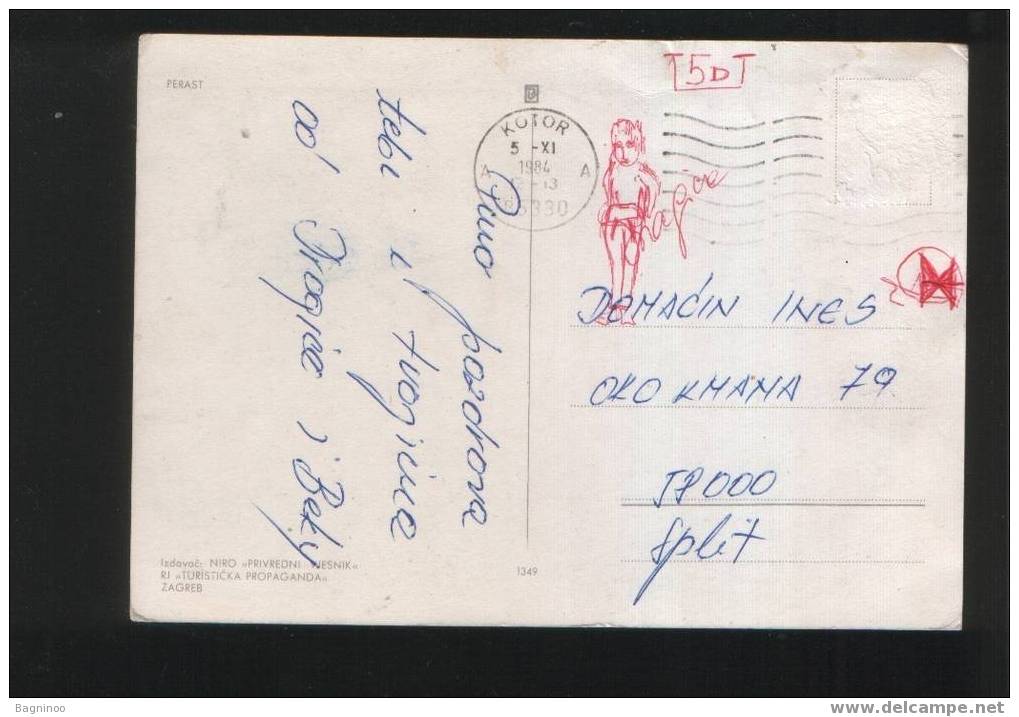 PERAST
Puno pozdrova
tebi i tvojima
od Frogiće i Beky
Izdavač: NIRO »PRIVREDNI VJESNIK«
RJ »TURISTIČKA PROPAGANDA«
ZAGREB
1349
KOTOR
5 -XI
1984
A A
-13
85330
T5DT
DOMAĆIN INES
OKO KMANA 79
58000
Split
Bagninoo
www.delcampe.net